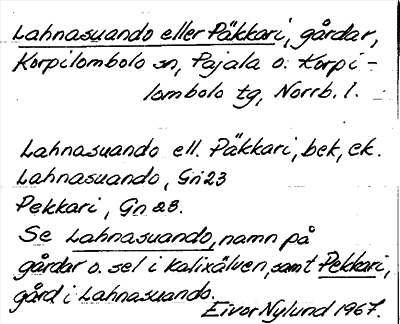 Lahnasuando eller Päkkari, gårdar,
Korpilombolo sn, Pajala o. Korpi-
lombolo tg, Norrb. l.
Lahnasuando ell. Päkkari, bek, ek.
Lahnasuando, Gn 23
Pekkari, Gn 23.
Se Lahnasuando, namn på
gårdar o. sel i Kalixälven, samt Pekkari,
gård i Lahnasuando.
Eivor Nylund 1967.